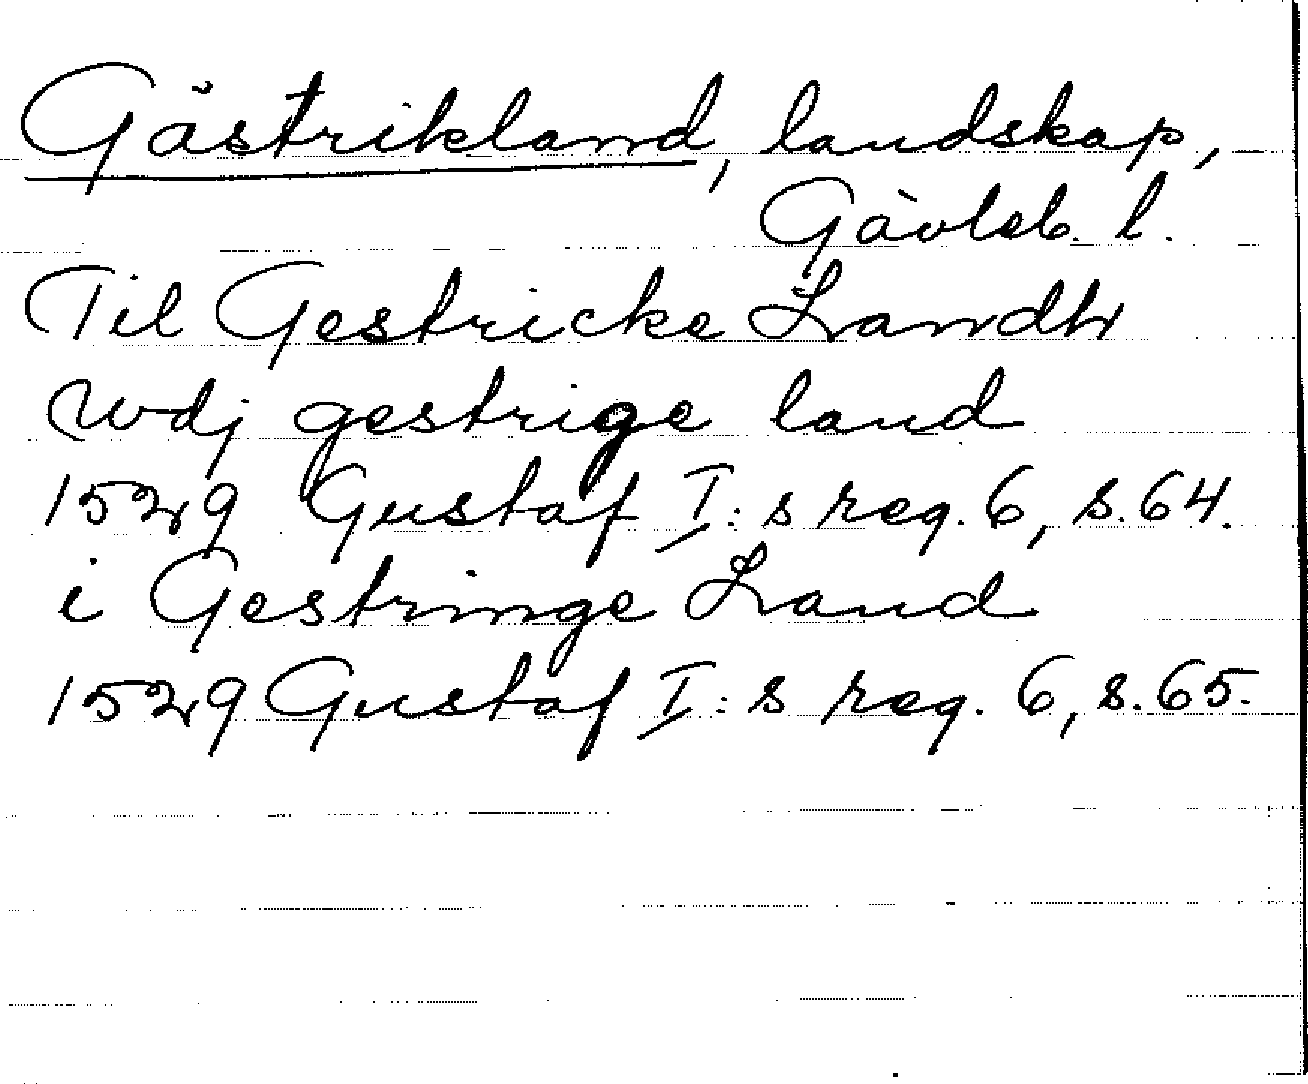 Gästrikland, landskap,
Gävleb. l.
Til Gestricke Landh
wdj gestrige land
1529 Gustaf I:s reg. 6, s. 64.
i Gestringe Land
1529 Gustaf I:s reg. 6, s. 65.